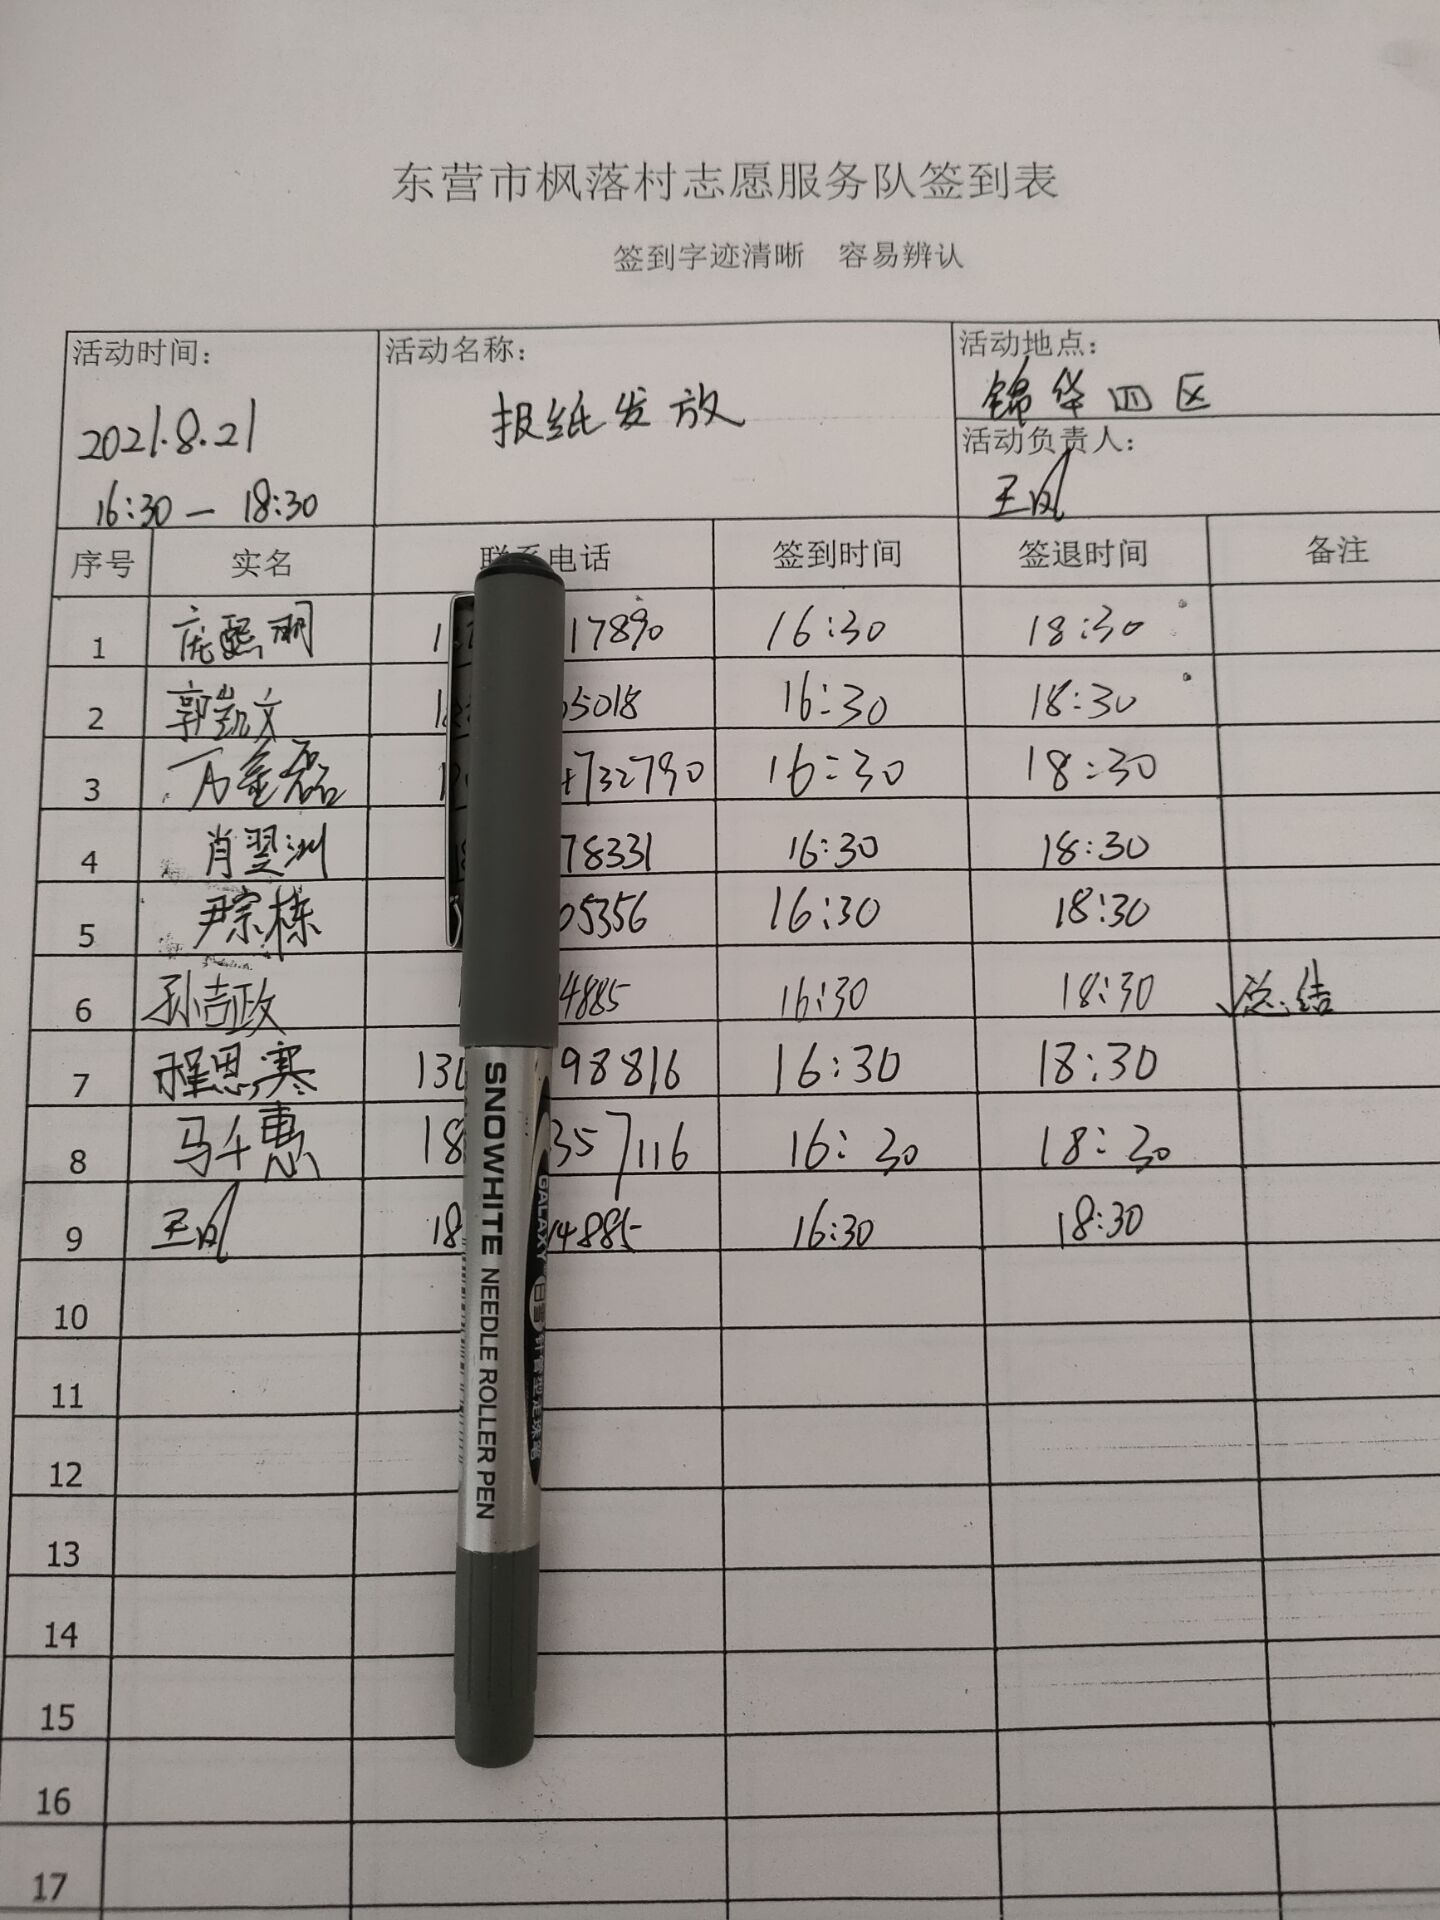 东营市枫落村志愿服务队签到表
签到字迹清晰 容易辨认
活动时间: 活动名称: 活动地点:
锦华四区
2021.8.21 报纸发放
活动负责人:
16:30 — 18:30 王凤
序号 实名 联系电话 签到时间 签退时间 备注
1 庞熙明 17890 16:30 18:30
2 郭凯文 5018 16:30 18:30
3 万金磊 732790 16:30 18:30
4 肖翌洲 78331 16:30 18:30
5 尹宗栋 05356 16:30 18:30
6 孙吉政 4885 16:30 18:30 √总结
7 程思寒 130 98816 16:30 18:30
8 马千惠 18 357116 16:30 18:30
9 王凤 18 4885 16:30 18:30
10
11
12
13
14
15
16
17
SNOWHITE NEEDLE ROLLER PEN
GALAXY 白雪 针管型走珠笔